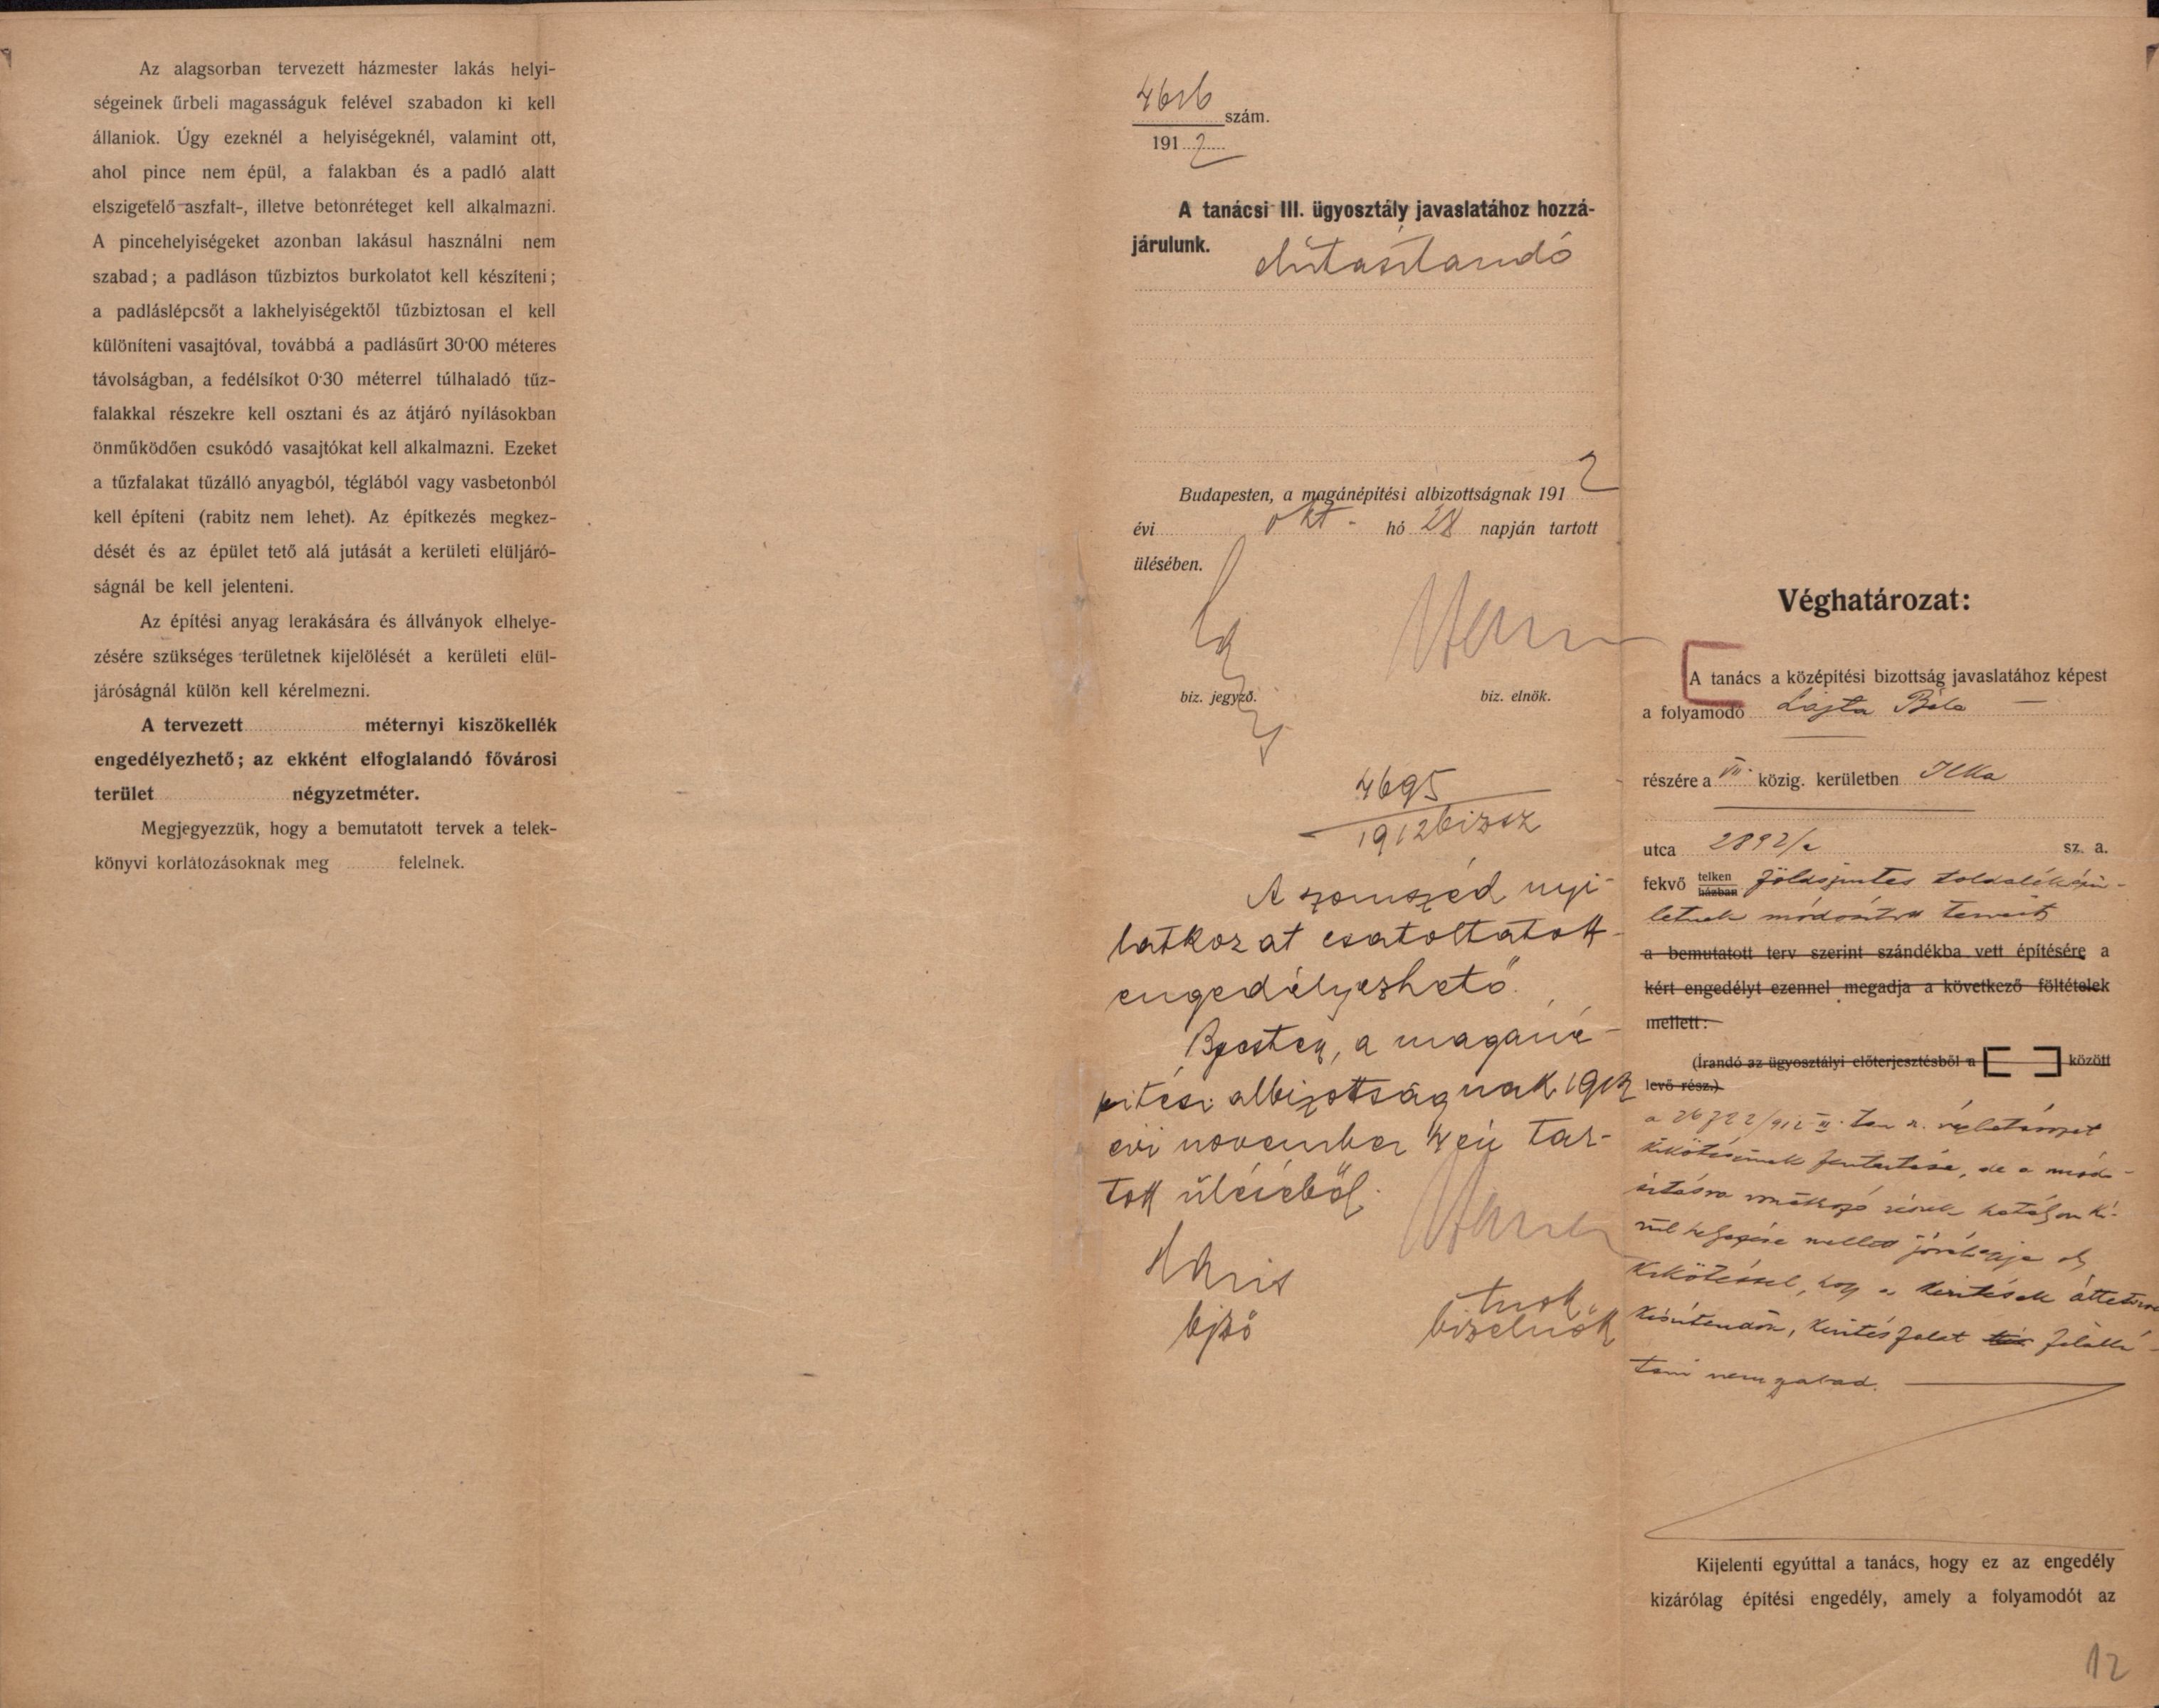 Az alagsorban tervezett házmester lakás helyi-
ségeinek űrbeli magasságuk felével szabadon ki kell
állaniok. Úgy ezeknél a helyiségeknél, valamint ott,
ahol pince nem épül, a falakban és a padló alatt
elszigetelő aszfalt-, illetve betonréteget kell alkalmazni.
A pincehelyiségeket azonban lakásul használni nem
szabad; a padláson tűzbiztos burkolatot kell készíteni;
a padláslépcsőt a lakhelyiségektől tűzbiztosan el kell
különíteni vasajtóval, továbbá a padlásűrt 30·00 méteres
távolságban, a fedélsíkot 0·30 méterrel túlhaladó tűz-
falakkal részekre kell osztani és az átjáró nyílásokban
önműködően csukódó vasajtókat kell alkalmazni. Ezeket
a tűzfalakat tűzálló anyagból, téglából vagy vasbetonból
kell építeni (rabitz nem lehet). Az építkezés megkez-
dését és az épület tető alá jutását a kerületi elüljáró-
ságnál be kell jelenteni.
Az építési anyag lerakására és állványok elhelye-
zésére szükséges területnek kijelölését a kerületi elül-
járóságnál külön kell kérelmezni.
A tervezett méternyi kiszökellék
engedélyezhető; az ekként elfoglalandó fővárosi
terület négyzetméter.
Megjegyezzük, hogy a bemutatott tervek a telek-
könyvi korlátozásoknak meg felelnek.
szám.
1912
A tanácsi III. ügyosztály javaslatához hozzá-
járulunk. elutasítandó
Budapesten, a magánépítési albizottságnak 1912
évi okt. hó 28 napján tartott
ülésében.
biz. jegyző. biz. elnök.
4695
1912 bizsz
A szomszéd nyi-
latkozat csatoltatott
engedélyezhető.
Bpesten, a magáné-
pitési albizottságnak 1912
évi november 4 én tar-
tott üléséből.
bjző bizelnök
Véghatározat:
A tanács a középítési bizottság javaslatához képest
a folyamodó Lajta Béla
részére a VII. közig. kerületben Ilka
utca 2892/a sz. a.
fekvő telken házban földszintes toldaléképü-
letnek módosított terveit
a bemutatott terv szerint szándékba vett építésére a
kért engedélyt ezennel megadja a következő föltételek
mellett:
(Írandó az ügyosztályi előterjesztésből a [ ] között
levő rész.)
a 26722/912 III. tan. n. véghatározat
kikötéseinek fentartása, de a mód-
ositásra vonatkozó részek hatályon ki-
vül helyezése mellett jóváhagyja oly
kikötéssel, hogy a kerítések
készítendők, kerítésfalat felállí-
tani nem szabad.
Kijelenti egyúttal a tanács, hogy ez az engedély
kizárólag építési engedély, amely a folyamodót az
12